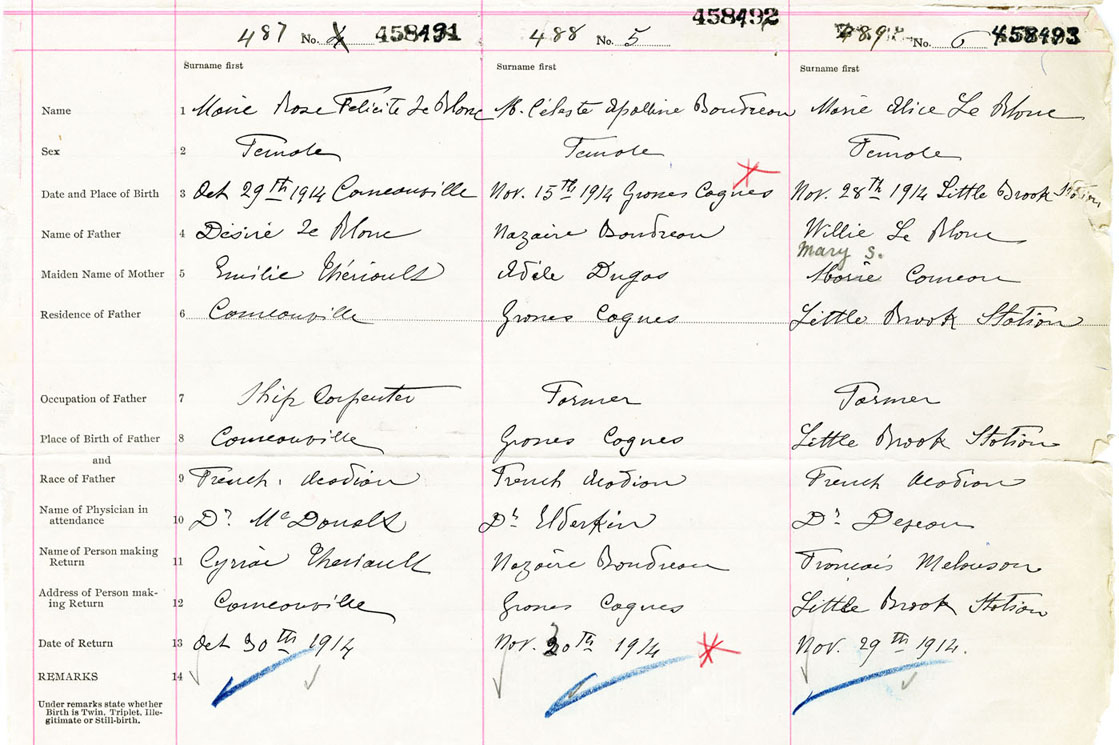 458492
487 No. 4 458491 488 No. 5 489 No. 6 458493
Surname first Surname first Surname first
Name 1 Marie Rose Felicite Le Blanc M. Céleste Apolline Boudreau Marie Alice Le Blanc
Sex 2 Female Female Female
Date and Place of Birth 3 Oct 29th 1914 Comeauville Nov. 15th 1914 Groses Coques Nov. 28th 1914 Little Brook Station
Name of Father 4 Désiré Le Blanc Nazaire Boudreau Willie Le Blanc
Mary S.
Maiden Name of Mother 5 Emilie Thériault Adèle Dugas Marie Comeau
Residence of Father 6 Comeauville Groses Coques Little Brook Station
Occupation of Father 7 Ship Carpenter Farmer Farmer
Place of Birth of Father 8 Comeauville Groses Coques Little Brook Station
and
Race of Father 9 French Acadian French Acadian French Acadian
Name of Physician in
attendance 10 Dr McDonald Dr Elderkin Dr
Name of Person making
Return 11 Cyriac Theriault Nazaire Boudreau Francois Melanson
Address of Person mak-
ing Return 12 Comeauville Groses Coques Little Brook Station
Date of Return 13 Oct 30th 1914 Nov. 30th 1914 Nov. 29th 1914.
REMARKS 14
Under remarks state whether
Birth is Twin, Triplet, Ille-
gitimate or Still-birth.